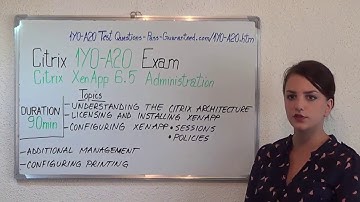 1Y0-A20 Test Questions-Pass-Guaranteed.com/1Y0-A20.htm
Citrix 1Y0-A20 Exam
Citrix XenApp 6.5 Administration
Topics
DURATION
90min
- UNDERSTANDING THE CITRIX ARCHITECTURE
- LICENSING AND INSTALLING XENAPP
- CONFIGURING XENAPP • SESSIONS
• POLICIES
- ADDITIONAL MANAGEMENT
- CONFIGURING PRINTING